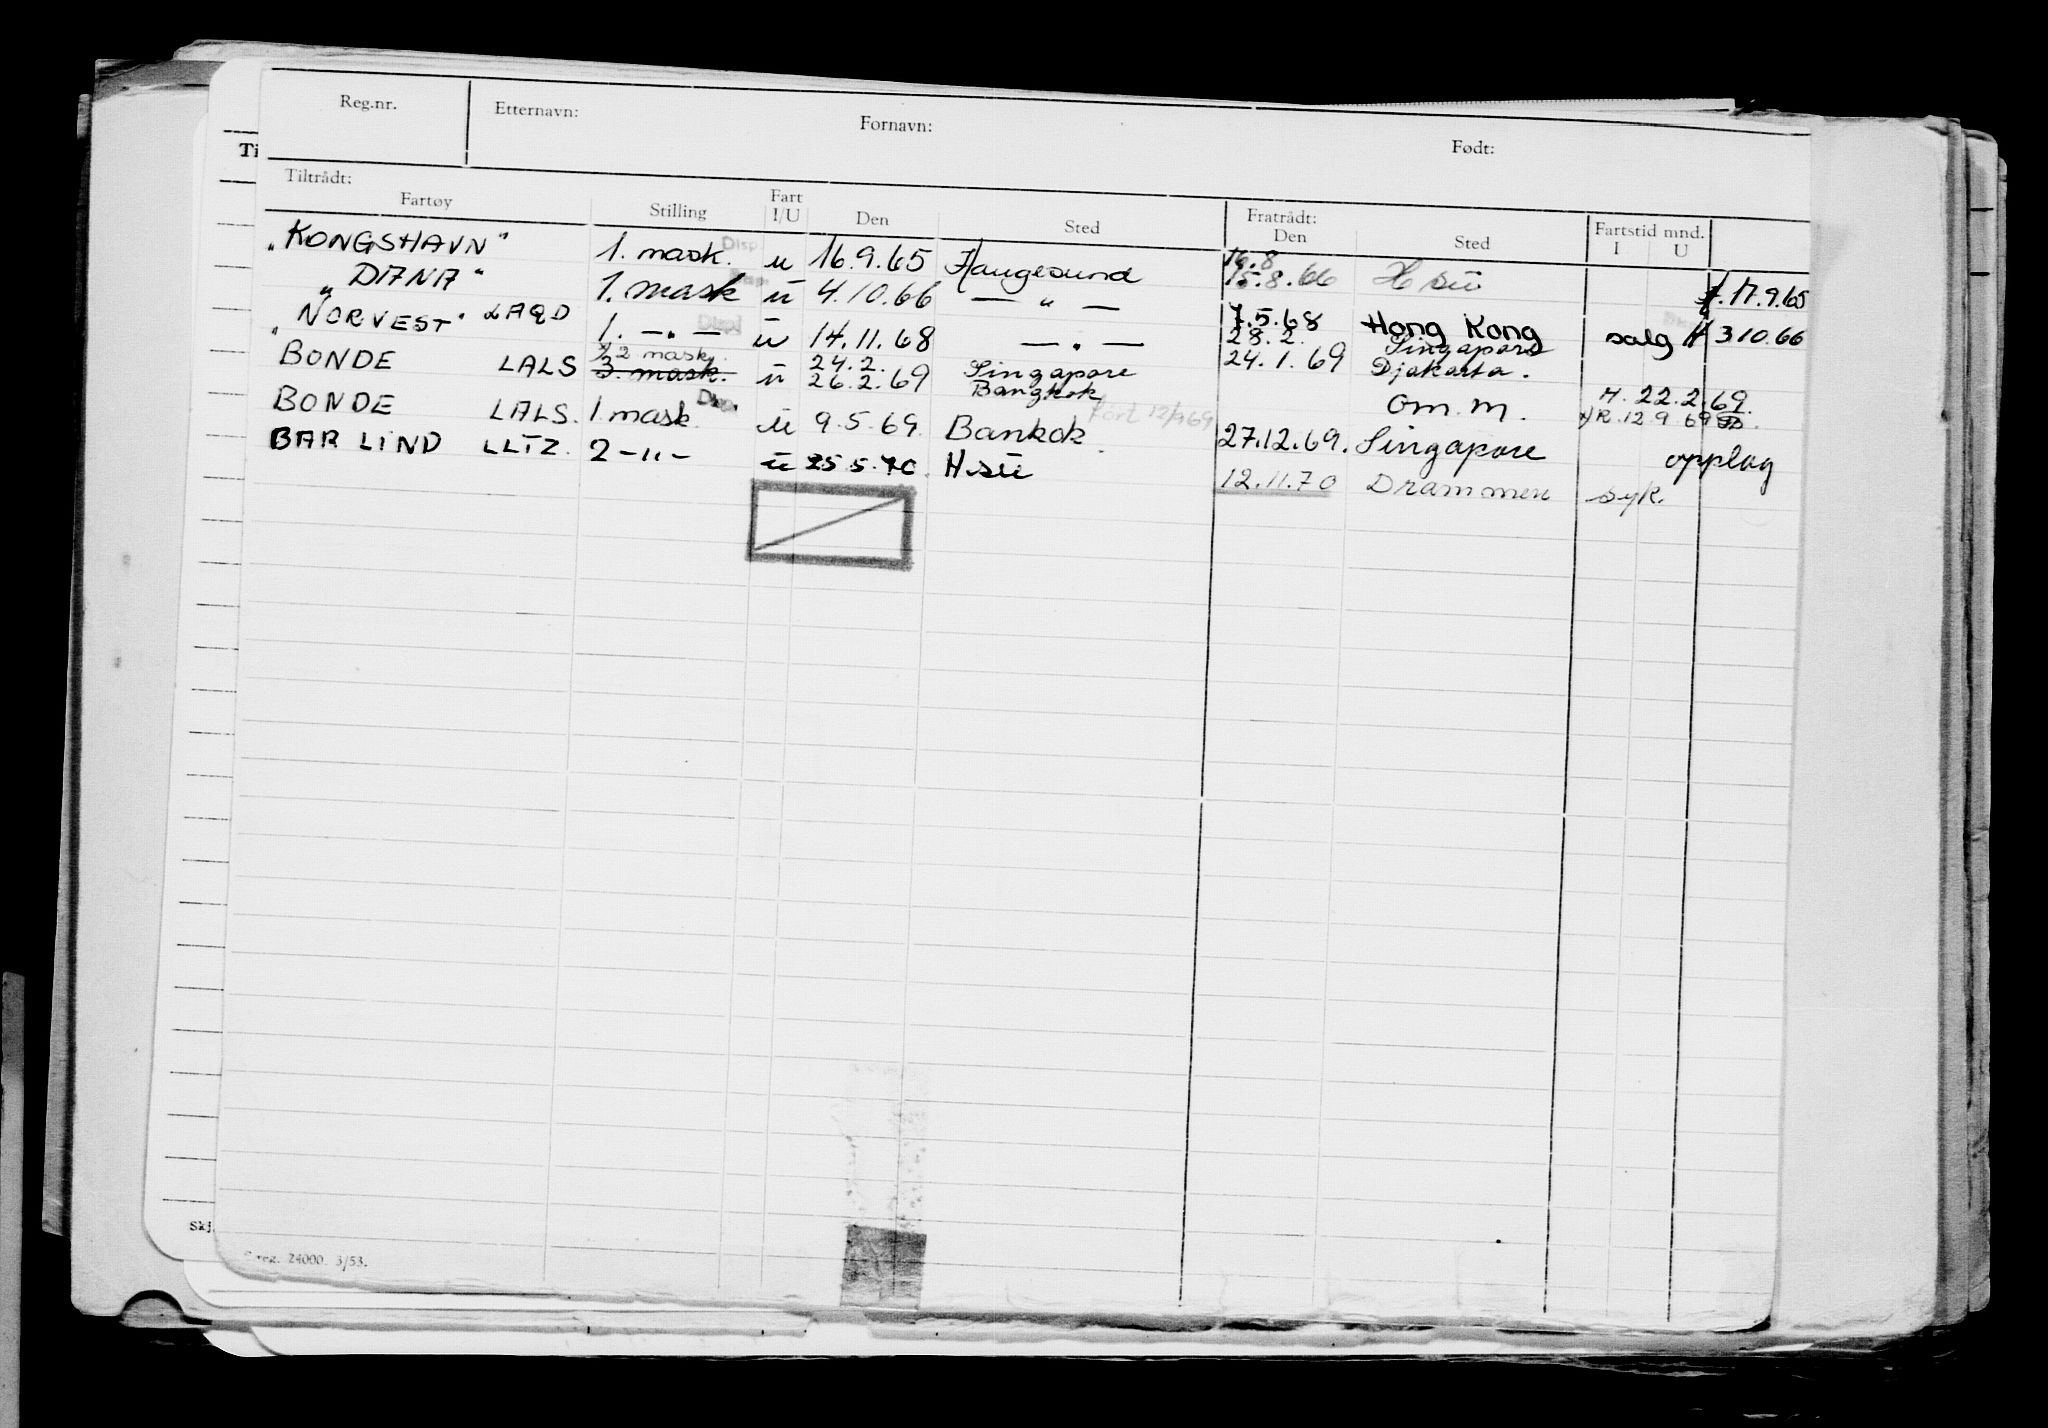 Reg.nr. Etternavn: Fornavn: Født:
Ti
Tiltrådt: Fratrådt:
Fartøy Stilling Fart I/U Den Sted Den Sted Fartstid mnd. I U
"KONGSHAVN" 1. mask. Disp. u 16.9.65 Haugesund 16.8 15.8.66 H su 17.9.65
"DIANA" 1. mask ü 4.10.66 — " — 7.5.68 Hong Kong salg H 3 10.66
"NORVEST" LAQD 1. — " — Disp ü 14.11.68 — " — 28.2. 24.1.69 Singapore Djakarta.
BONDE LALS 2 mask. 3. mask. ü 24.2. 26.2.69 Singapore Bangkok om. m. H. 22.2.69.
BONDE LALS. 1. mask Disp. ü 9.5.69 Bankok Fort 12/9 69 27.12.69. Singapore R. 12.9 69 opplag
BAR LIND LLTZ. 2 -"- ü 25 5.70. H.su 12.11.70 Drammen syk.
Skj.
reg. 24000. 3/53.